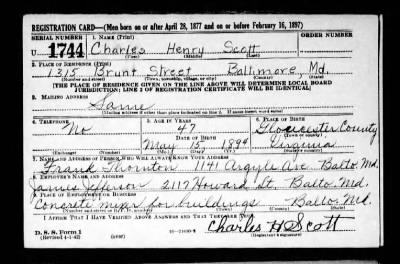 REGISTRATION CARD—(Men born on or after April 28, 1877 and on or before February 16, 1897)
SERIAL NUMBER 1. Name (Print) ORDER NUMBER
U 1744 Charles Henry Scott
(First) (Middle) (Last)
2. Place of Residence (Print)
1315 Brunt Street Baltimore, Md.
(Number and street) (Town, township, village, or city) (County) (State)
[THE PLACE OF RESIDENCE GIVEN ON THE LINE ABOVE WILL DETERMINE LOCAL BOARD
JURISDICTION; LINE 2 OF REGISTRATION CERTIFICATE WILL BE IDENTICAL]
3. Mailing Address
Same
[Mailing address if other than place indicated on line 2. If same insert word same]
4. Telephone 5. Age in Years 6. Place of Birth
No 47 Gloucester County
Date of Birth (Town or county)
May 15, 1894 Virginia
(Exchange) (Number) (Mo.) (Day) (Yr.) (State or country)
7. Name and Address of Person Who Will Always Know Your Address
Frank Thornton 1141 Argyle Ave. Balto. Md.
8. Employer's Name and Address
James Jefferson 2117 Howard St. Balto. Md.
9. Place of Employment or Business
Concrete mixer for buildings Balto. Md.
(Number and street or R. F. D. number) (Town) (County) (State)
I Affirm That I Have Verified Above Answers and That They Are True.
D. S. S. Form 1 Charles H Scott
(Revised 4-1-42) (over) (Registrant's signature)